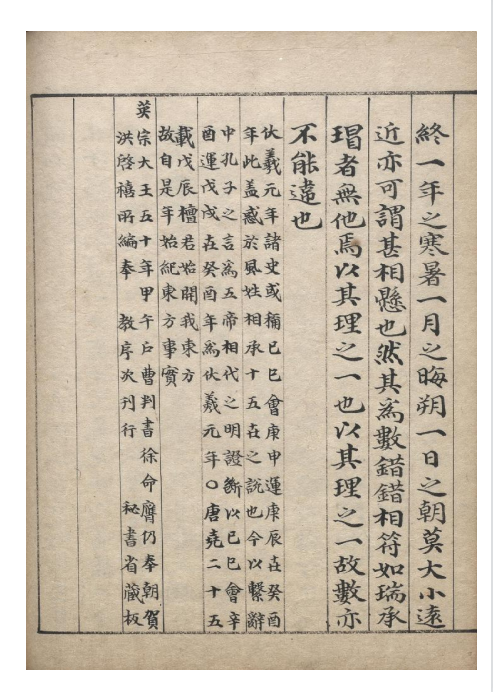 終一年之寒暑一月之晦朔一日之朝莫大小遠
近亦可謂甚相懸也然其爲數錯錯相符如瑞承
瑁者無他焉以其理之一也以其理之一故數亦
不能違也
伏羲元年諸史或稱己巳會庚申運庚辰世癸酉
年此盖惑於風姓相承十五世之說也今以繫辭
中孔子之言爲五帝相代之明證斷以己巳會辛
酉運戊戌世癸酉年爲伏羲元年○唐堯二十五
載戊辰檀君始開我東方
故自是年始紀東方事實
英宗大王五十年甲午戶曹判書徐命膺仍奉朝賀
洪啓禧所編奉 敎序次刊行 秘書省藏板